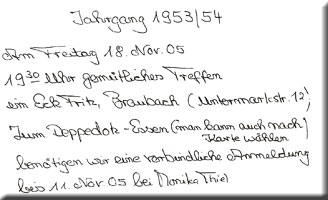 Jahrgang 1953/54
Am Freitag 18. Nov. 05
19³⁰ Uhr gemütliches Treffen
ein Eck Fritz, Braubach (Untermarktstr. 12)
Zum Deppedotz-Essen (man kann auch nach
Karte wählen)
benötigen wir eine verbindliche Anmeldung
bis 11. Nov 05 bei Monika Thiel